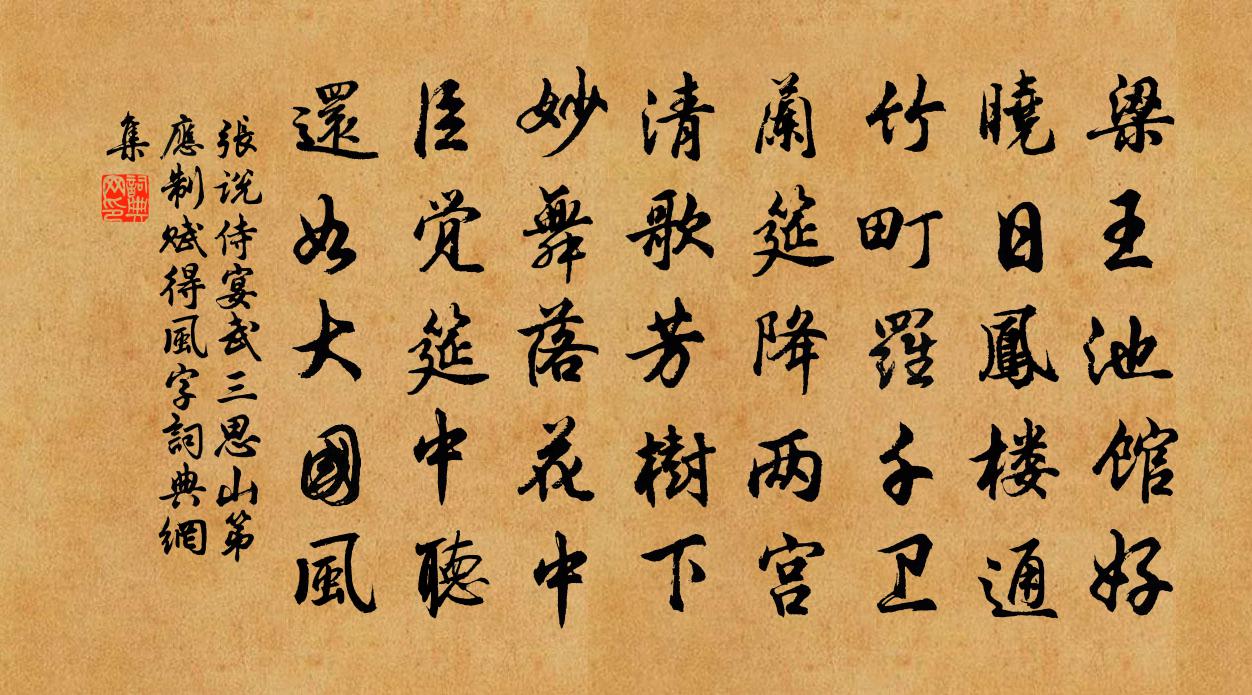 梁王池馆好
曉日鳳楼通
竹町羅千卫
蘭筵降两宫
清歌芳樹下
妙舞落花中
臣觉筵中聽
還如大國風
張说侍宴武三思山第
應制赋得風字詞典網
集
詞典网印